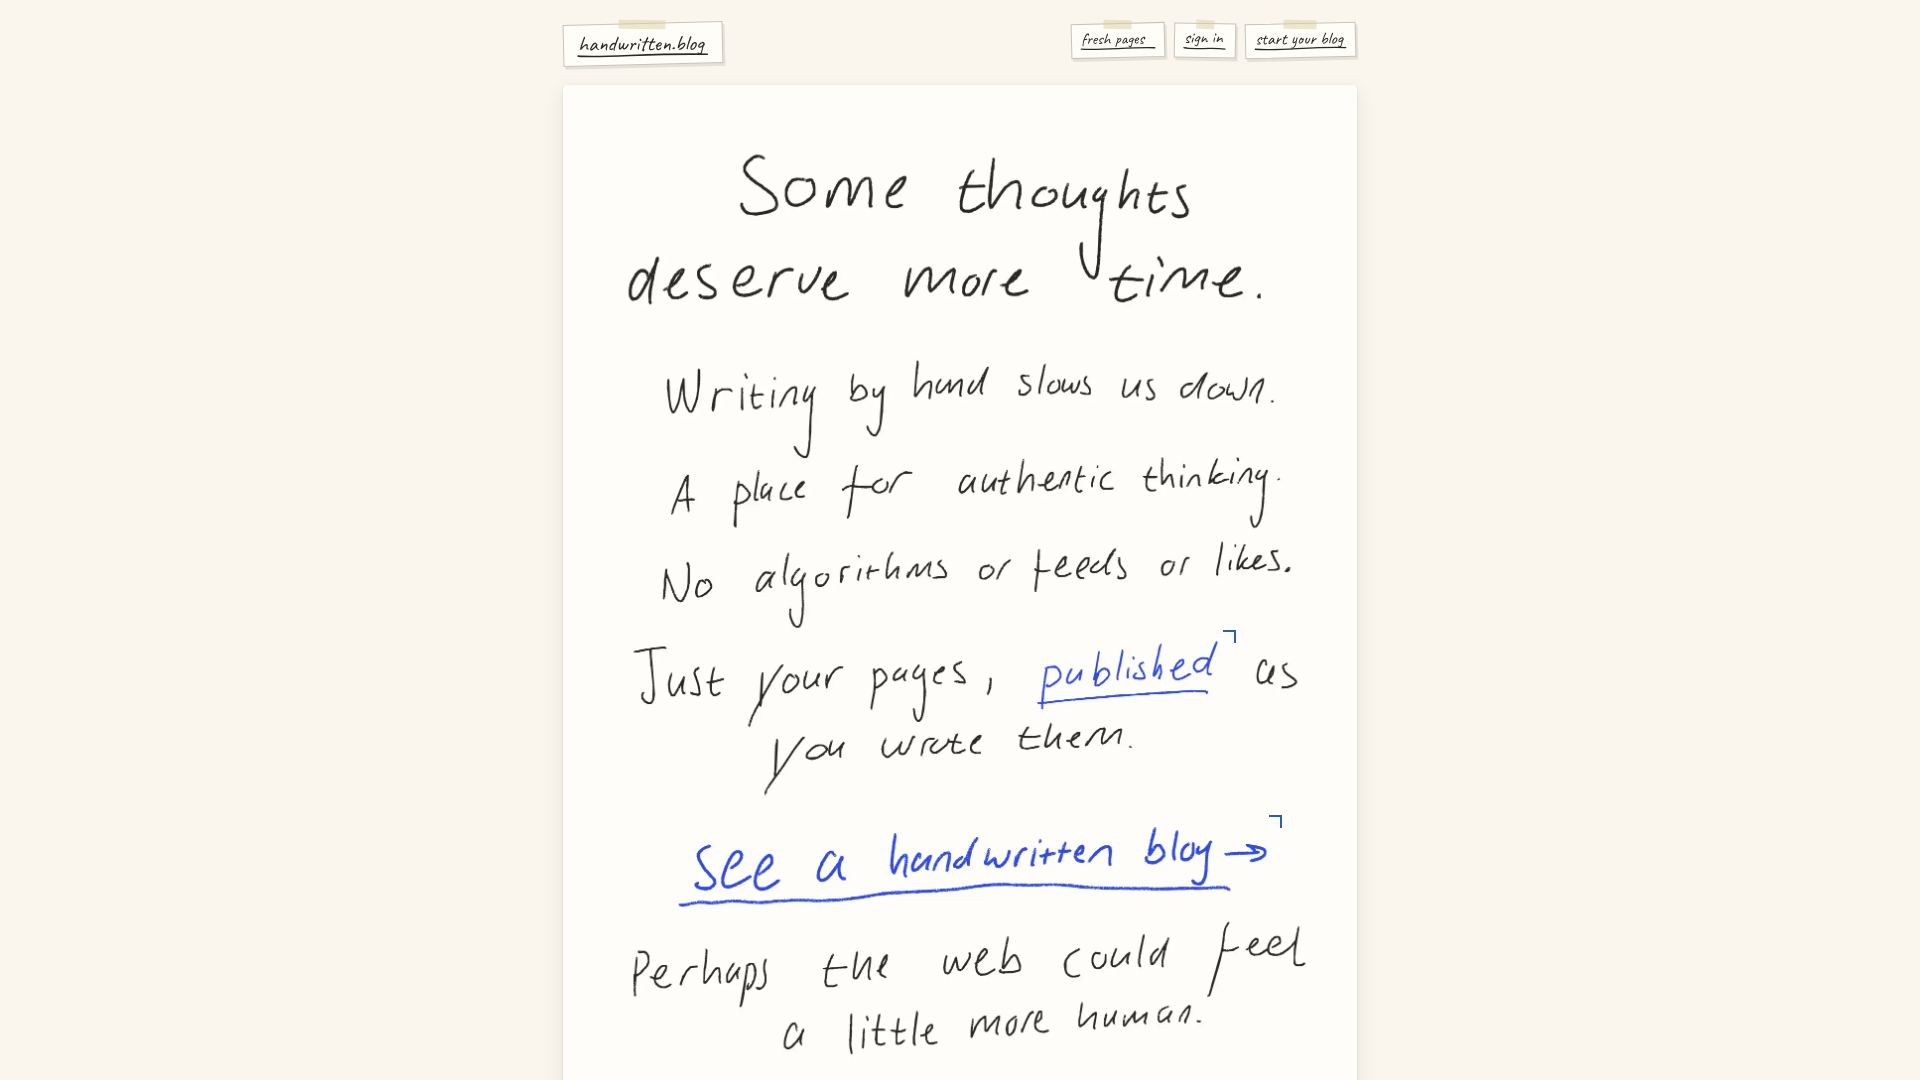 handwritten.blog
fresh pages
sign in
start your blog
Some thoughts
deserve more time.
Writing by hand slows us down.
A place for authentic thinking.
No algorithms or feeds or likes.
Just your pages, published as
you wrote them.
see a handwritten blog →
Perhaps the web could feel
a little more human.